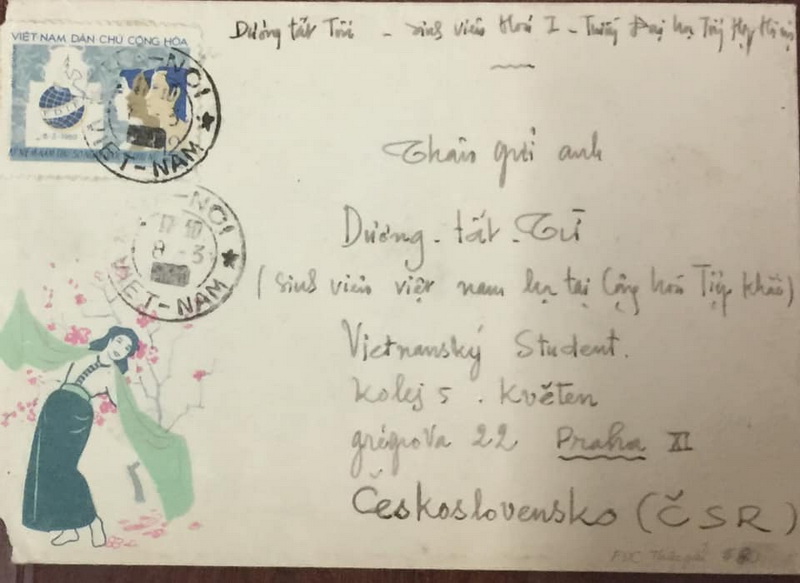 Dương tất Tài - sinh viên Hoá I - Trường Đại học Tổng Hợp Hà nội
VIỆT-NAM DÂN CHỦ CỘNG HÒA
8-3-1960
-NOI
VIET-NAM
-NOI
17-10
8-3
VIET-NAM
Thân gửi anh
Dương. tất. Từ
(Sinh viên việt nam học tại Cộng hoà Tiệp khắc)
Vietnanský Student.
Kolej 5. Květen
grégrova 22 Praha XI
Československo (ČSR)